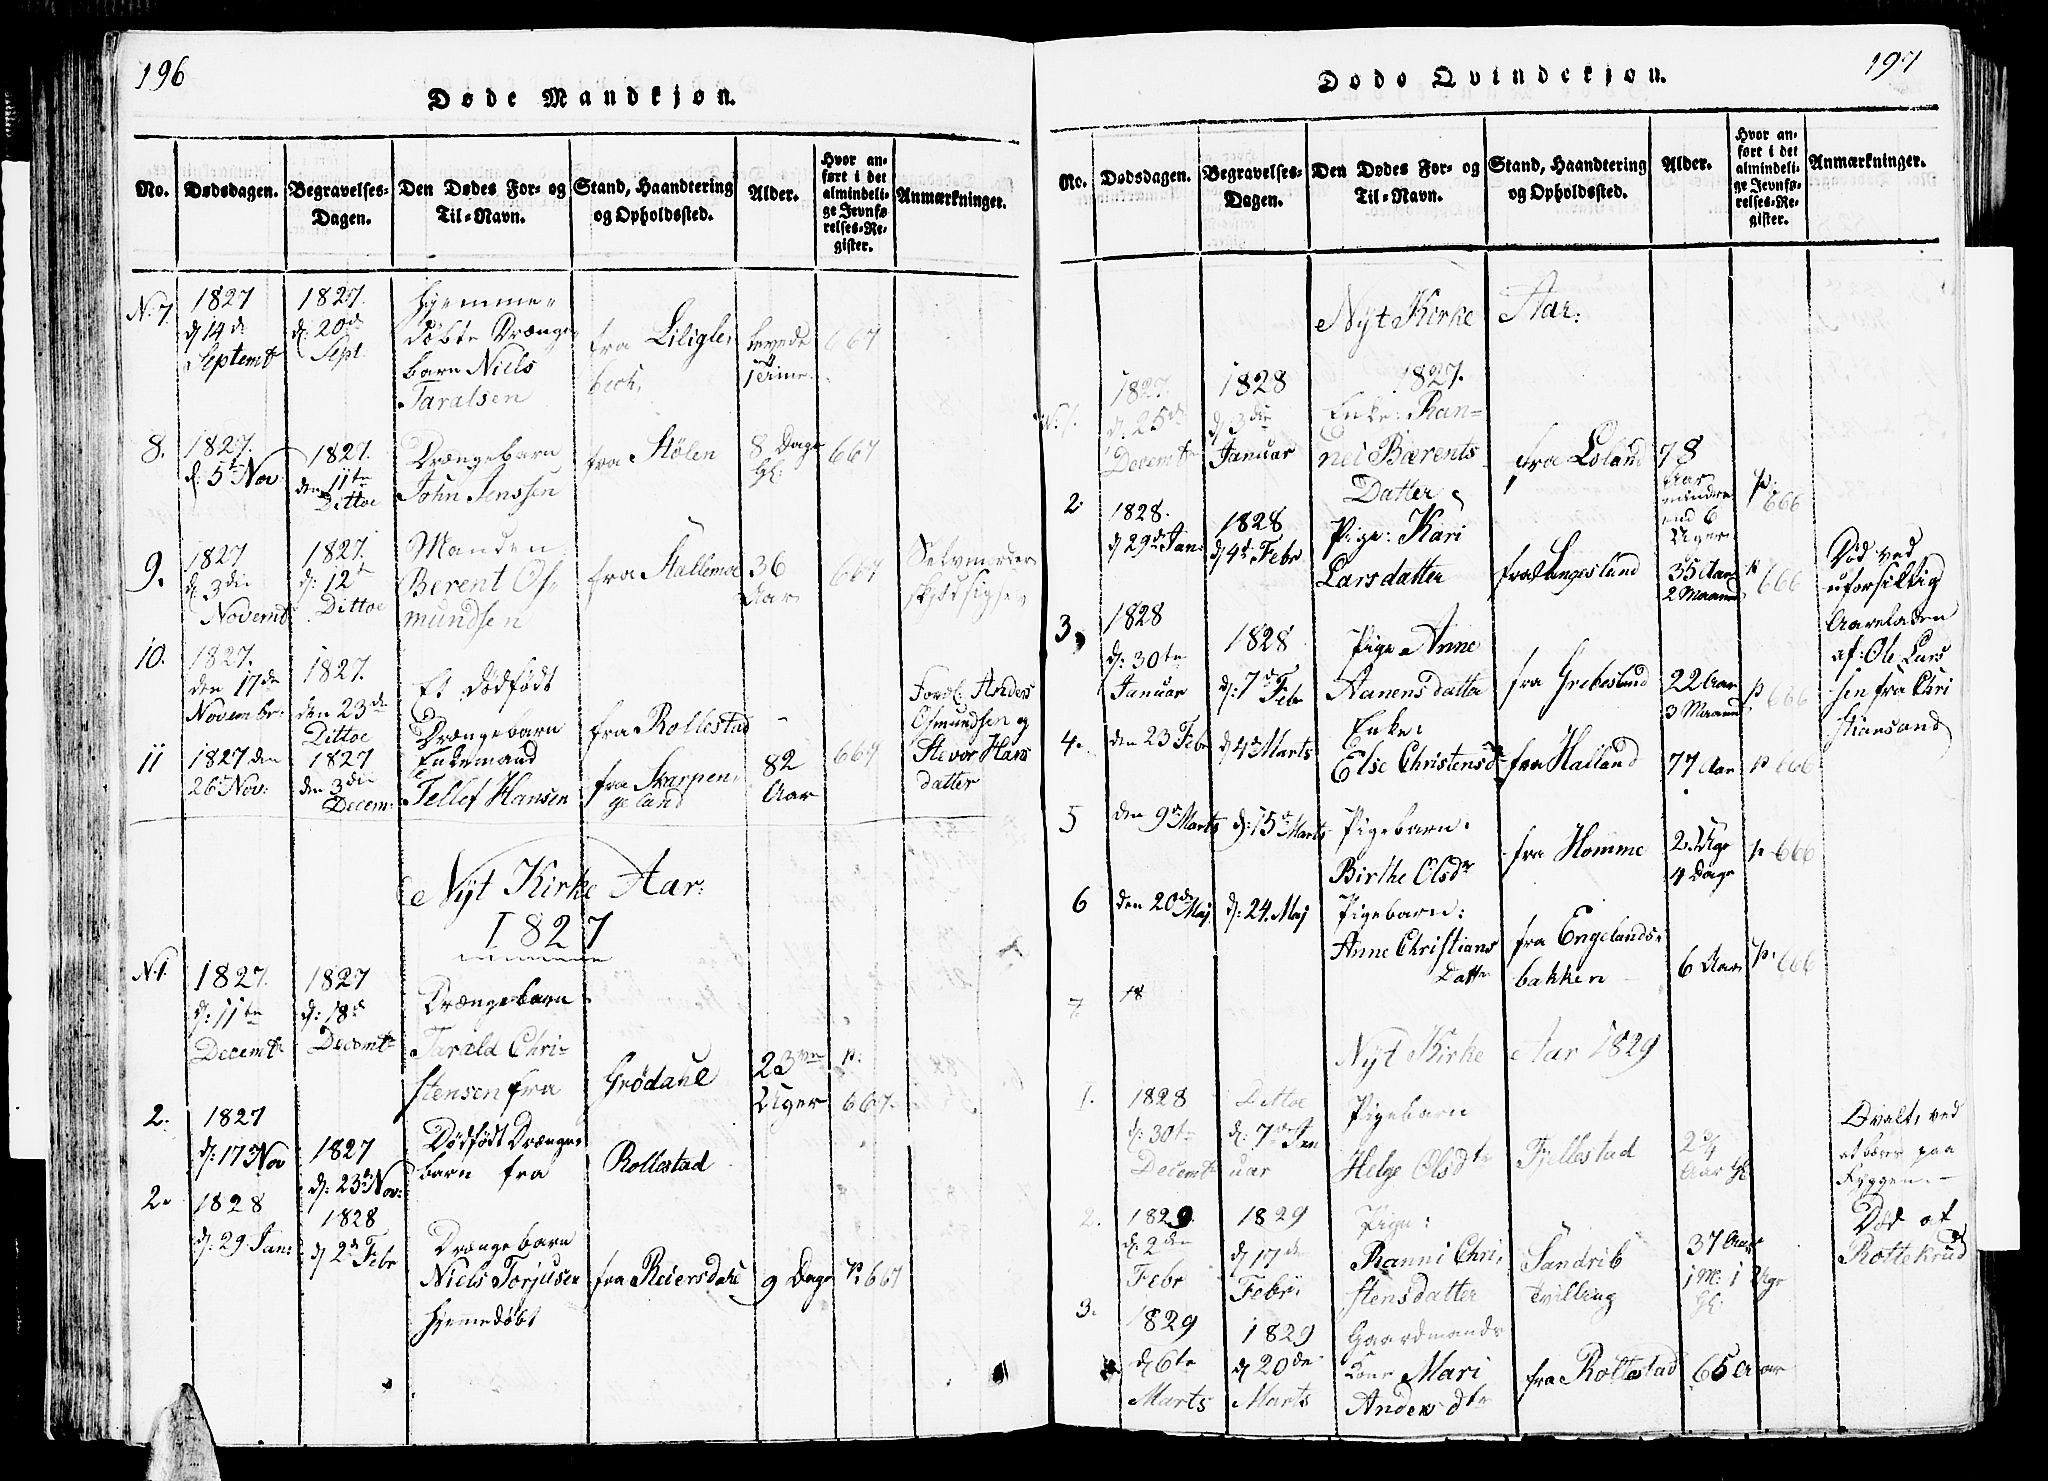 196
Døde Mandkjøn.
No.
Dødsdagen.
Begravelses-
Dagen.
Den Dødes For- og
Til-Navn.
Stand, Haandtering
og Opholdssted.
Alder.
Hvor an-
ført i det
almindeli-
ge Jevnfø-
relses-Re-
gister.
Anmærkninger.
N. 7.
1827
d 14de
Septemb
1827.
d: 20de
Sept:
Hjemme-
döbte Drænge
barn Niels
Taralsen
fra Liligle,
bech,
levede
1 Time.
667
8.
1827.
d: 5te Nov:
1827.
den 11te
Dittoe
Drængebarn
John Jenssen
fra Stölen
8 Dage
Gl:
667
9.
1827
d: 3die
Novemb
1827.
d: 12te
Dittoe
Manden
Berent Os-
mundsen
fra Stallemoe
36
Aar
667
Selvmorder
skjød sig selv
10.
1827.
den 17de
Novembr:
1827.
den 23de
Dittoe
Et Dödfödt
Drængebarn
fra Rollestad
-
Foræl: Anders
Osmundsen og
Stevor Hans
datter
11
1827 den
26 Nov:
1827
den 3die
Decem:
Enkemand
Tellef Hansen
fra Skarpen,
geland
82
Aar
667
Nyt Kirke Aar:
1827
N. 1.
1827.
d: 11te
Decembr
1827
d: 18de
Decembr
Drængebarn
Tarald Chri-
stensen fra
Grödahl
23
Uger
p:
667.
2.
1827
d: 17 Nov
1827
d: 23de Nov:
Dödfödt Drænge
barn fra
Rollestad
2.
1828
d: 29 Jan:
1828
d 2de Febr
Drængebarn
Niels Torjusen
Hjemedöbt
fra Reiersdahl
9 Dage
p. 667
197
Døde Qvindekjøn.
No.
Dødsdagen.
Begravelses-
Dagen.
Den Dødes For- og
Til-Navn.
Stand, Haandtering
og Opholdssted.
Alder.
Hvor an-
ført i det
almindeli-
ge Jevnfø-
relses-Re-
gister.
Anmærkninger.
Nyt Kirke Aar:
1827.
N. 1.
1827.
d. 25de
Decembr
1828
d 3die
Januar
Enke: Ran-
nei Bærents
Datter
fra Loland
78
Aar
mindre
end 6
Uger
p:
666
2
1828.
d 29de Jan:
1828
d 4de Febr
Pige: Kari
Larsdatter
fra Langesland
35 Aar
2 Maaned
p
666
Död ved
uforsiktig
Aareladen
af: Ole Lars
sen fra Chri
stiansand
3.
1828
d: 30te
Januar
1828
d: 7de Febr
Pige Anne
Aanensdatter
fra Grebesland
22 Aar
3 Maaned
p
666
4.
den 23 Febr
d 4de Marts
Enke:
Else Christensdr
fra Halland
77 Aar
p 666
5
den 9de Marts
d: 15de Marts
Pigebarn:
Birthe Olsdr
fra Homme
2 Uge
4 Dage
p 666
6
den 20de Maj
d: 24 Maj
Pigebarn:
Anne Christians
Datter
fra Engelands-
bakken
6 Aar
p. 666
7.
18
Nyt Kirke Aar 1829
1.
1828
d: 30te
Decembr
Dittoe
d: 7de Jan
uar
Pigebarn
Helge Olsdtr
Fjellestad
2 3/4
Aar Gl
Qvalt, ved
at bæres paa
Ryggen.-
2.
1829.
d. 2den
Febr
1829
d 17de
Febr:
Pige:
Ranni Chri,
stensdatter
Sandrib
Tvilling
37 Aar
1 M: 1 Uge
Gl:
Död af
Rottekrud
3.
1829
d 6te
Marts
1829
d 20de
Marts
Gaardmands
Kone Mari
Andersdtr
fra Rollestad
65 Aar